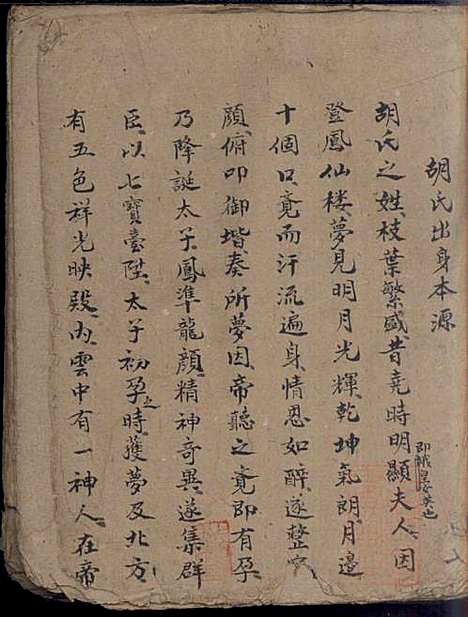 胡氏出身本源
胡氏之姓、枝葉繁盛、昔堯時明顯夫人、因
即娥皇女英也
登鳳仙楼、夢見明月光輝、乾坤氣朗、月邉
十個口、竟而汗流遍身、情思如醉、遂整
顔、俯叩御堦奏所夢、因帝聽之、竟即有孕、
乃降誕太子、鳳準龍顔、精神竒異、遂集群
臣、以七寶臺陞、太子初孕之時、獲夢及北方
有五色祥光映殿、内雲中有一神人、在帝